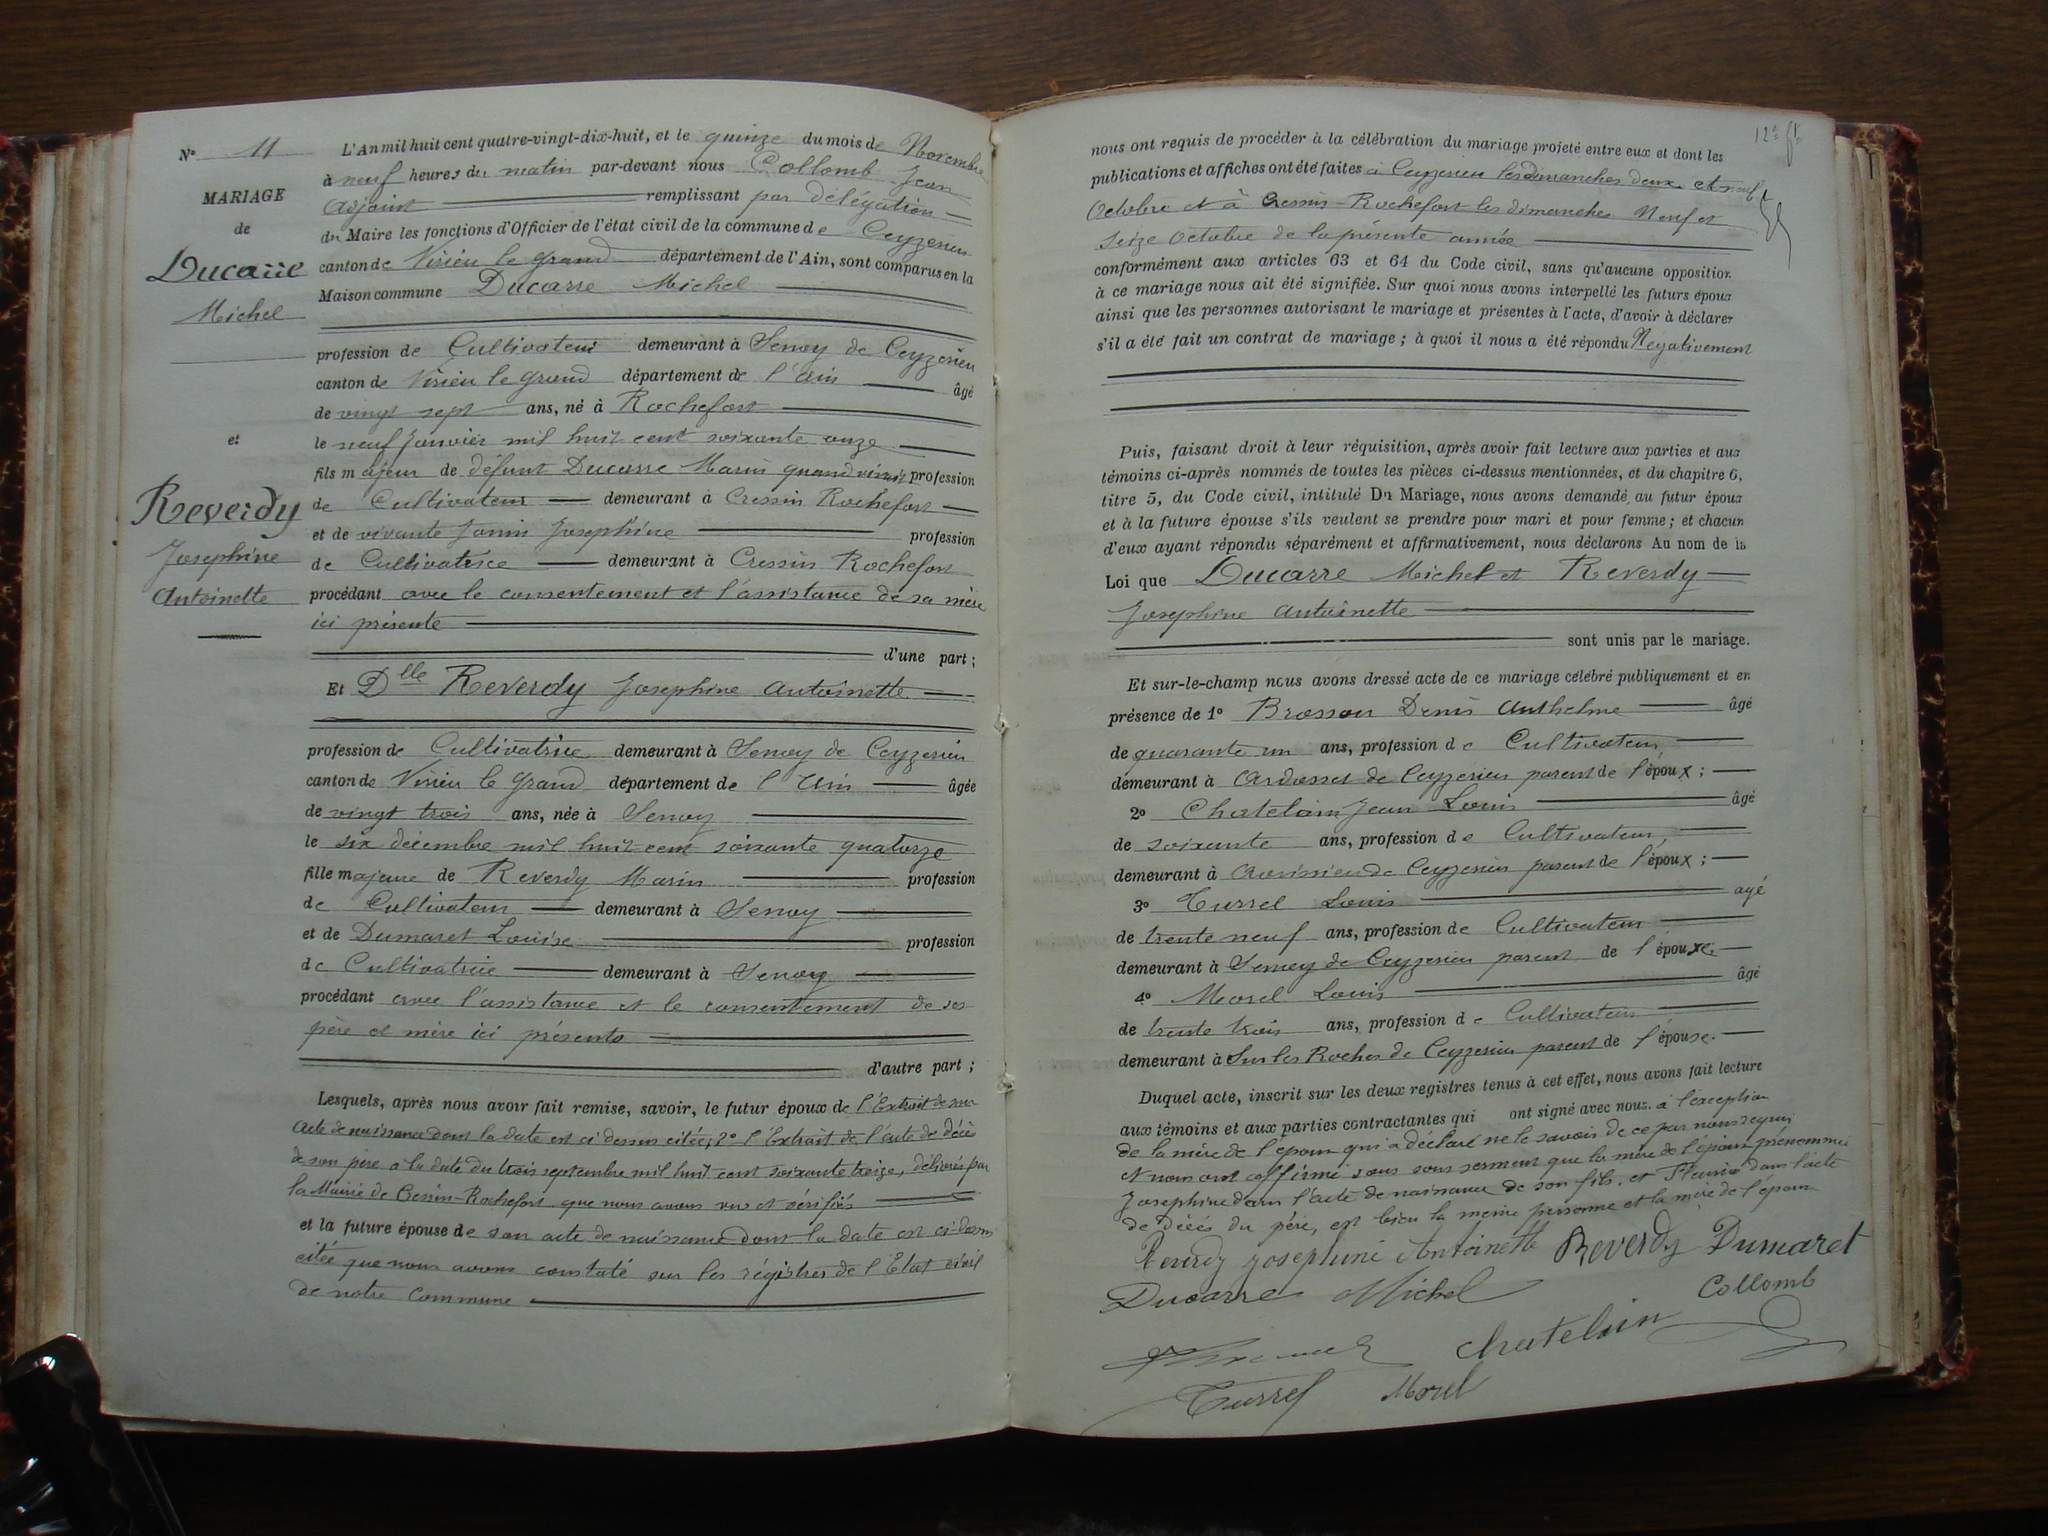 Nº 11
MARIAGE
de
Ducarre
Michel
et
Reverdy
Josephine
Antoinette
L'An mil huit cent quatre-vingt-dix-huit, et le quinze du mois de Novembre
à neuf heures du matin par-devant nous Collomb Jean
Adjoint remplissant par délégation
du Maire les fonctions d'Officier de l'état civil de la commune de Ceyzerieu
canton de Virieu le grand département de l'Ain, sont comparus en la
Maison commune Ducarre Michel
profession de Cultivateur demeurant à Senoy de Ceyzerieu
canton de Virieu le Grand département de l'Ain âgé
de vingt sept ans, né à Rochefort
le neuf Janvier mil huit cent soixante onze
fils majeur de défunt Ducarre Marin quand vivait profession
de Cultivateur demeurant à Cressin Rochefort
et de vivante Janin Josephine profession
de Cultivatrice demeurant à Cressin Rochefort
procédant avec le consentement et l'assistance de sa mère
ici présente
d'une part ;
Et Dlle Reverdy Josephine Antoinette
profession de Cultivatrice demeurant à Senoy de Ceyzerieu
canton de Virieu le Grand département de l'Ain âgée
de vingt trois ans, née à Senoy
le six décembre mil huit cent soixante quatorze
fille majeure de Reverdy Marin profession
de Cultivateur demeurant à Senoy
et de Dumaret Louise profession
de Cultivatrice demeurant à Senoy
procédant avec l'assistance et le consentement de ses
père et mère ici présents
d'autre part ;
Lesquels, après nous avoir fait remise, savoir, le futur époux de l'Extrait de son
acte de naissance dont la date est ci dessus citée; 2º l'Extrait de l'acte de décès
de son père à la date du trois septembre mil huit cent soixante treize, délivrés par
la Mairie de Cressin-Rochefort que nous avons vus et vérifiés
et la future épouse de son acte de naissance dont la date est ci dessus
citée que nous avons constaté sur les régistres de l'Etat civil
de notre Commune
nous ont requis de procéder à la célébration du mariage projeté entre eux et dont les
publications et affiches ont été faites à Ceyzerieu les dimanches deux et neuf
Octobre et à Cressin-Rochefort les dimanches Neuf et
Seize Octobre de la présente année
conformément aux articles 63 et 64 du Code civil, sans qu'aucune opposition
à ce mariage nous ait été signifiée. Sur quoi nous avons interpellé les futurs époux
ainsi que les personnes autorisant le mariage et présentes à l'acte, d'avoir à déclarer
s'il a été fait un contrat de mariage ; à quoi il nous a été répondu Négativement
Puis, faisant droit à leur réquisition, après avoir fait lecture aux parties et aux
témoins ci-après nommés de toutes les pièces ci-dessus mentionnées, et du chapitre 6,
titre 5, du Code civil, intitulé Du Mariage, nous avons demandé au futur époux
et à la future épouse s'ils veulent se prendre pour mari et pour femme ; et chacun
d'eux ayant répondu séparément et affirmativement, nous déclarons Au nom de la
Loi que Ducarre Michel et Reverdy
Josephine Antoinette
sont unis par le mariage.
Et sur-le-champ nous avons dressé acte de ce mariage célébré publiquement et en
présence de 1º Denis Anthelme âgé
de quarante un ans, profession de Cultivateur,
demeurant à Ardosset de Ceyzerieu parent de l'époux ;
2º Chatelain Jean Louis âgé
de soixante ans, profession de Cultivateur,
demeurant à Avrissieu de Ceyzerieu parent de l'époux ;
3º Turrel Louis agé
de trente neuf ans, profession de Cultivateur
demeurant à Senoy de Ceyzerieu parent de l'épouxe
4º Morel Louis âgé
de trente trois ans, profession de Cultivateur
demeurant à Sur les Roches de Ceyzerieu parent de l'épouse.
Duquel acte, inscrit sur les deux registres tenus à cet effet, nous avons fait lecture
aux témoins et aux parties contractantes qui ont signé avec nous. à l'exception
de la mère de l'époux qui a déclaré ne le savoir de ce par nous requis
et nous ont affirmé sous serment que la mère de l'époux prénommée
Josephine dans l'acte de naissance de son fils, et dans l'acte
de décès du père, est bien la même personne et la mère de l'époux
Reverdy Josephine Antoinette Reverdy Dumaret
Ducarre Michel Collomb
Chatelain
Turrel Morel